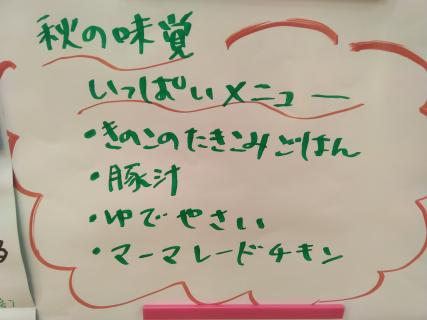 秋の味覚
いっぱいメニュー
・きのこのたきこみごはん
・豚汁
・ゆでやさい
・マーマレードチキン
る